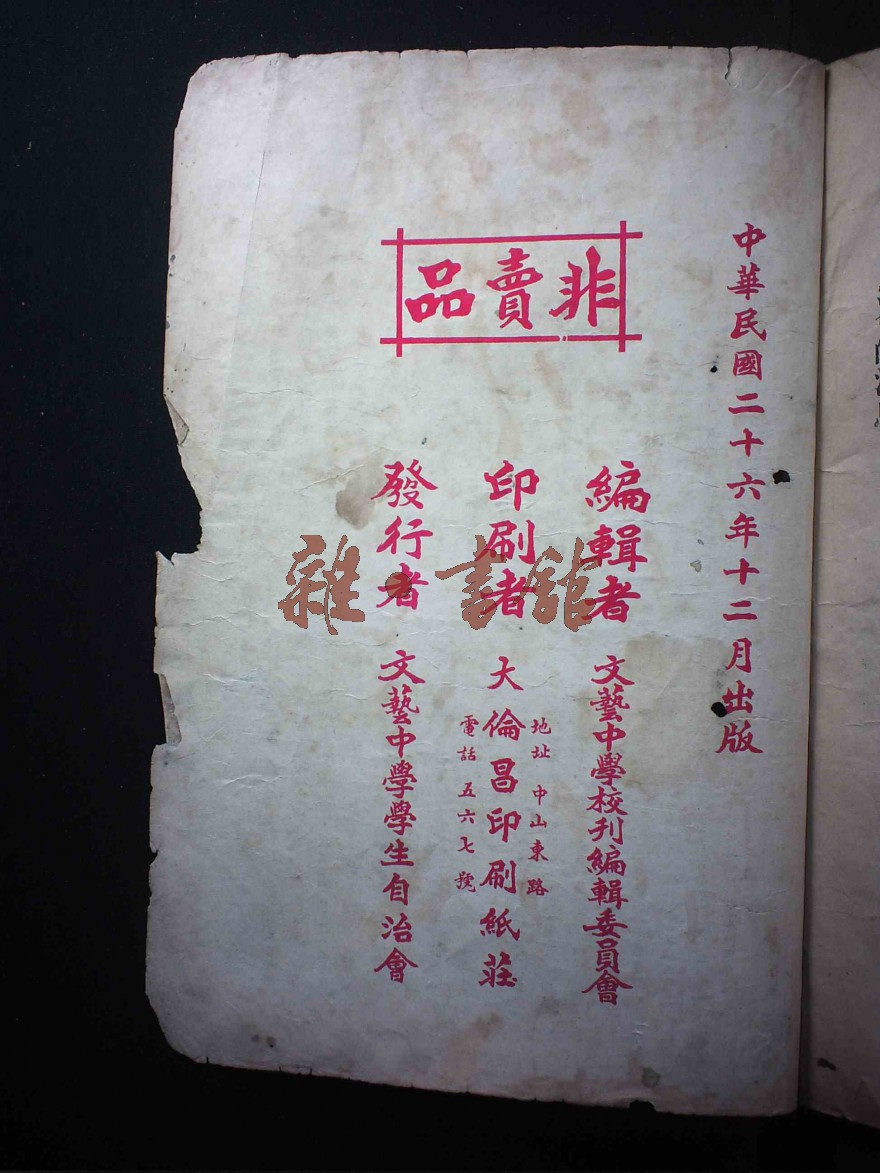 中華民國二十六年十二月出版
非賣品
編輯者 文藝中學校刊編輯委員會
地址 中山東路
印刷者 大倫昌印刷紙莊
電話 五六七號
發行者 文藝中學學生自治會
雜·書舘